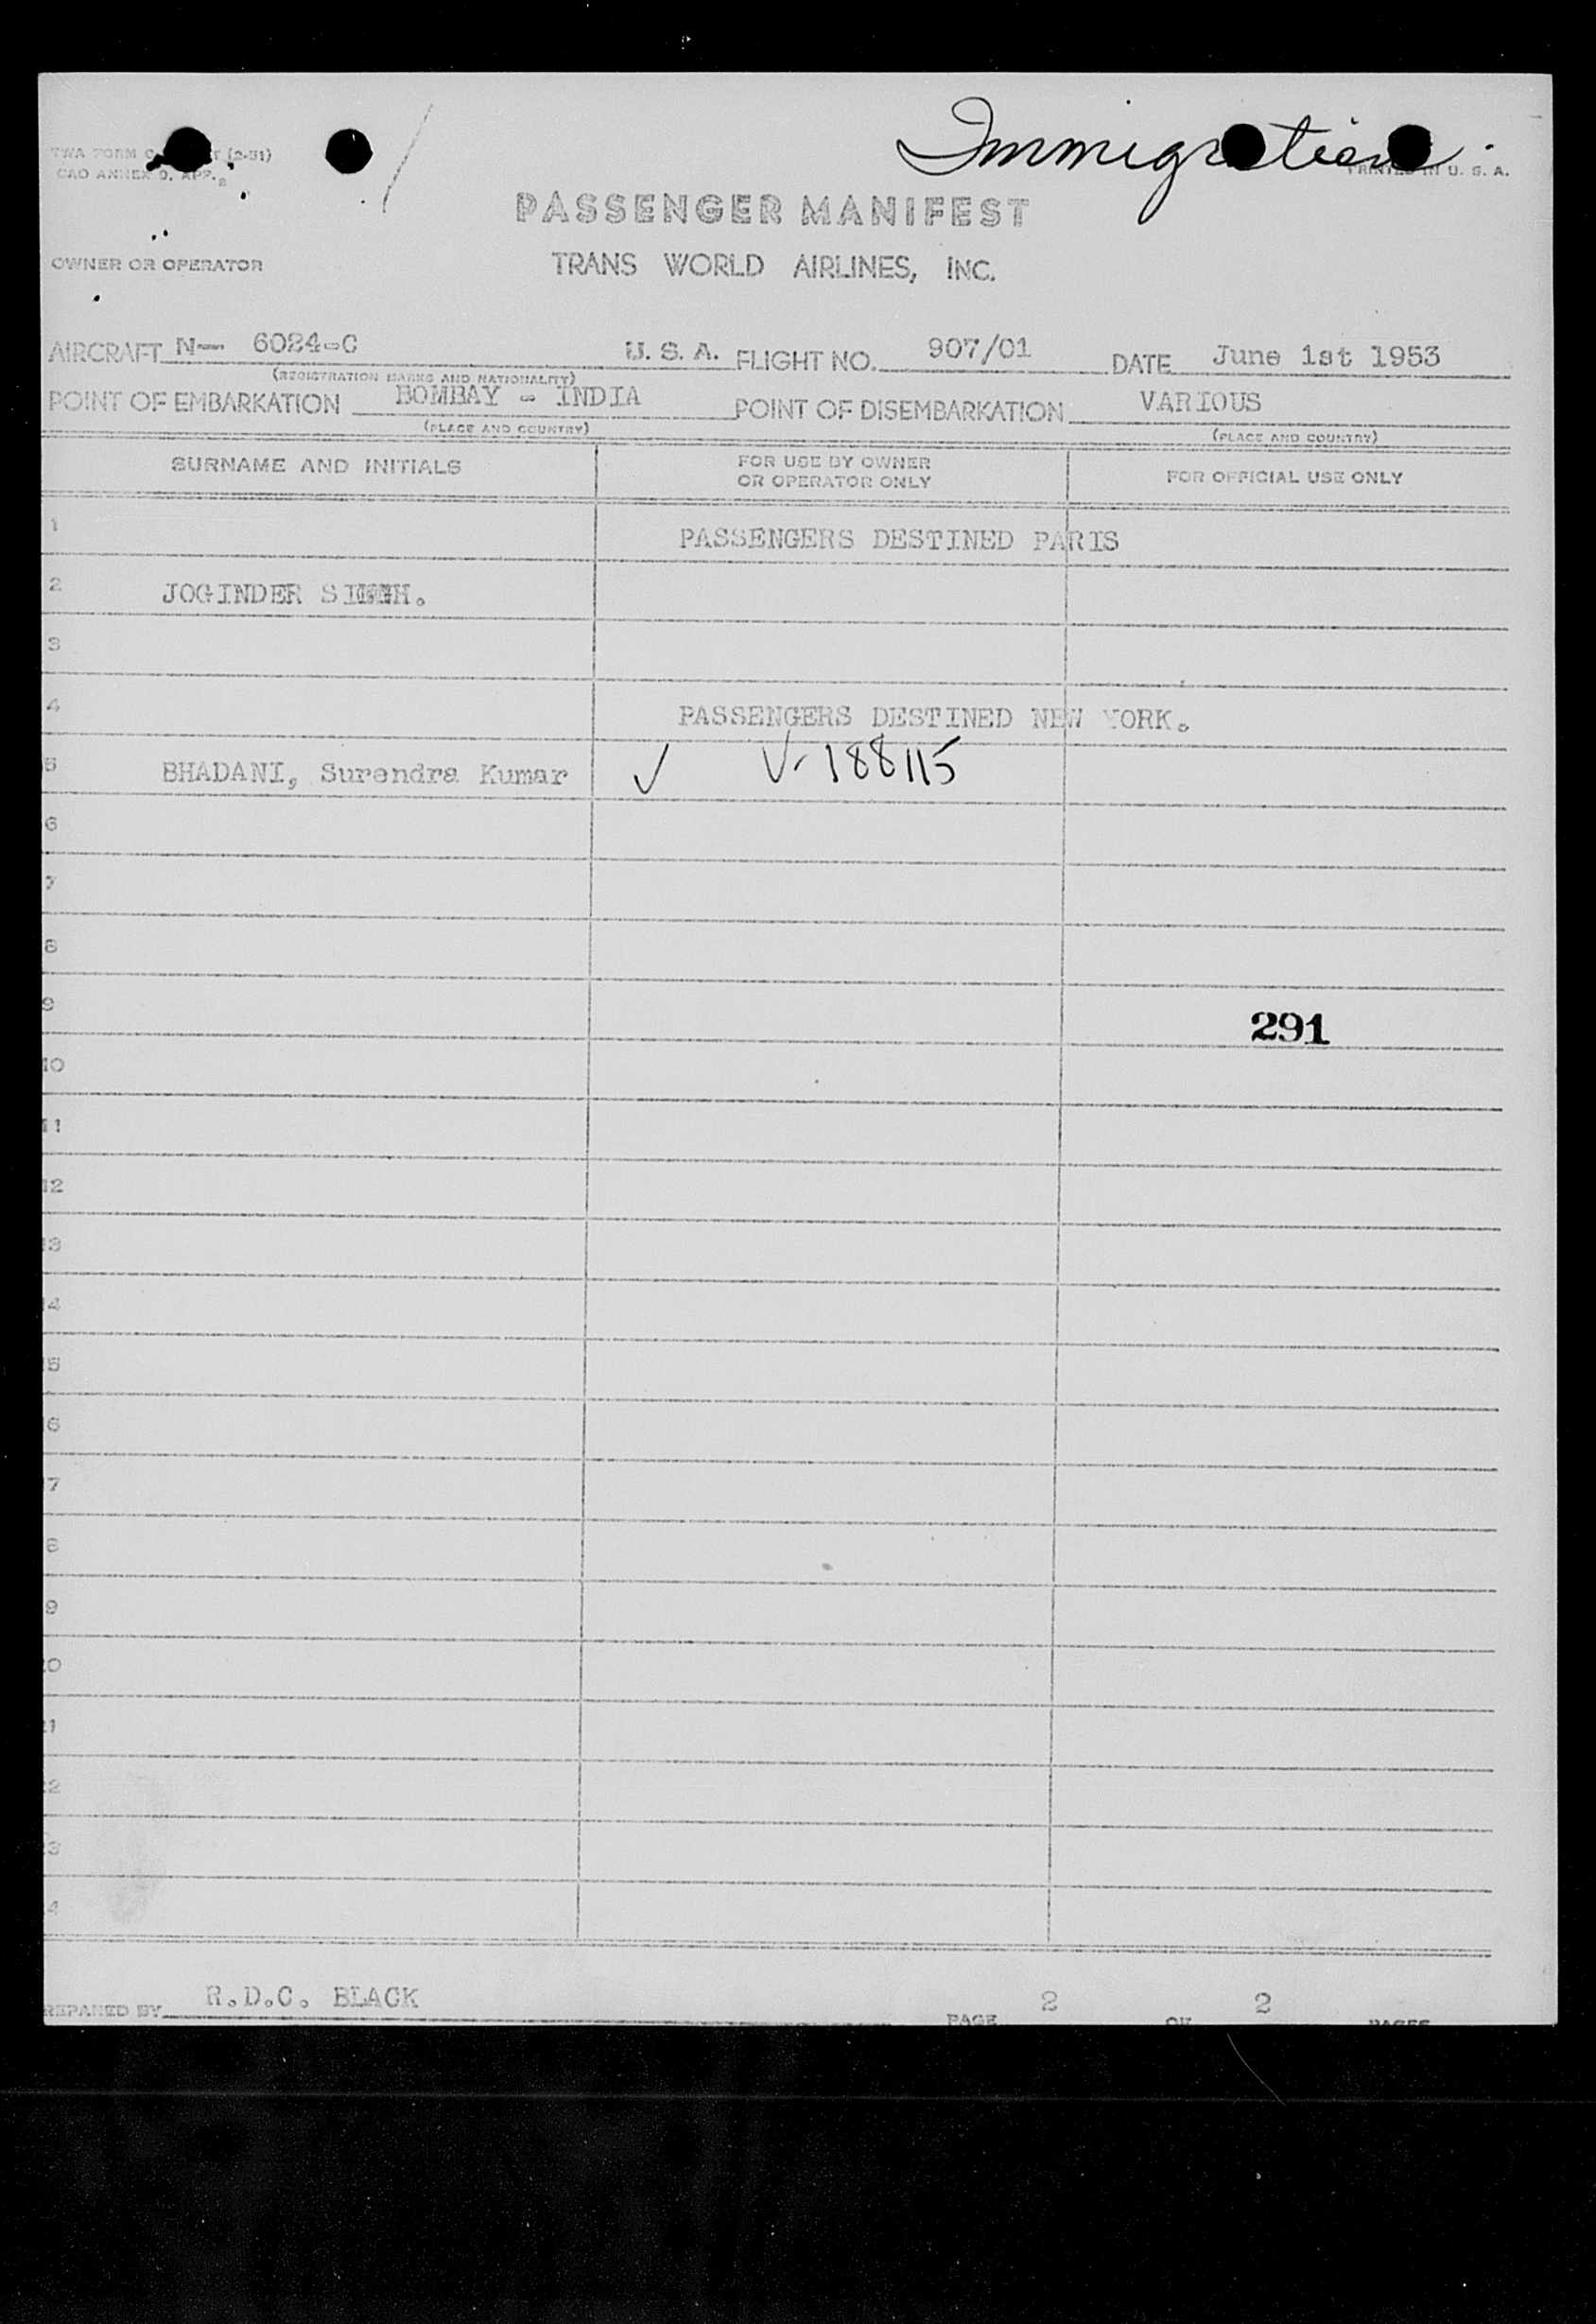 Immigration.
TWA FORM (2-51)
CAO ANNEX 9, APP. 2
PRINTED IN U. S. A.
PASSENGER MANIFEST
OWNER OR OPERATOR TRANS WORLD AIRLINES, INC.
AIRCRAFT N— 6024-C U. S. A. FLIGHT NO. 907/01 DATE June 1st 1953
(REGISTRATION MARKS AND NATIONALITY)
POINT OF EMBARKATION BOMBAY - INDIA POINT OF DISEMBARKATION VARIOUS
(PLACE AND COUNTRY) (PLACE AND COUNTRY)
SURNAME AND INITIALS FOR USE BY OWNER OR OPERATOR ONLY FOR OFFICIAL USE ONLY
1 PASSENGERS DESTINED PARIS
2 JOGINDER SINGH.
3
4 PASSENGERS DESTINED NEW YORK.
5 BHADANI, Surendra Kumar ✓ V-188115
6
7
8
9 291
10
11
12
13
14
5
6
7
8
9
0
1
2
3
4
REPARED BY R.D.C. BLACK PAGE 2 OF 2 PAGES